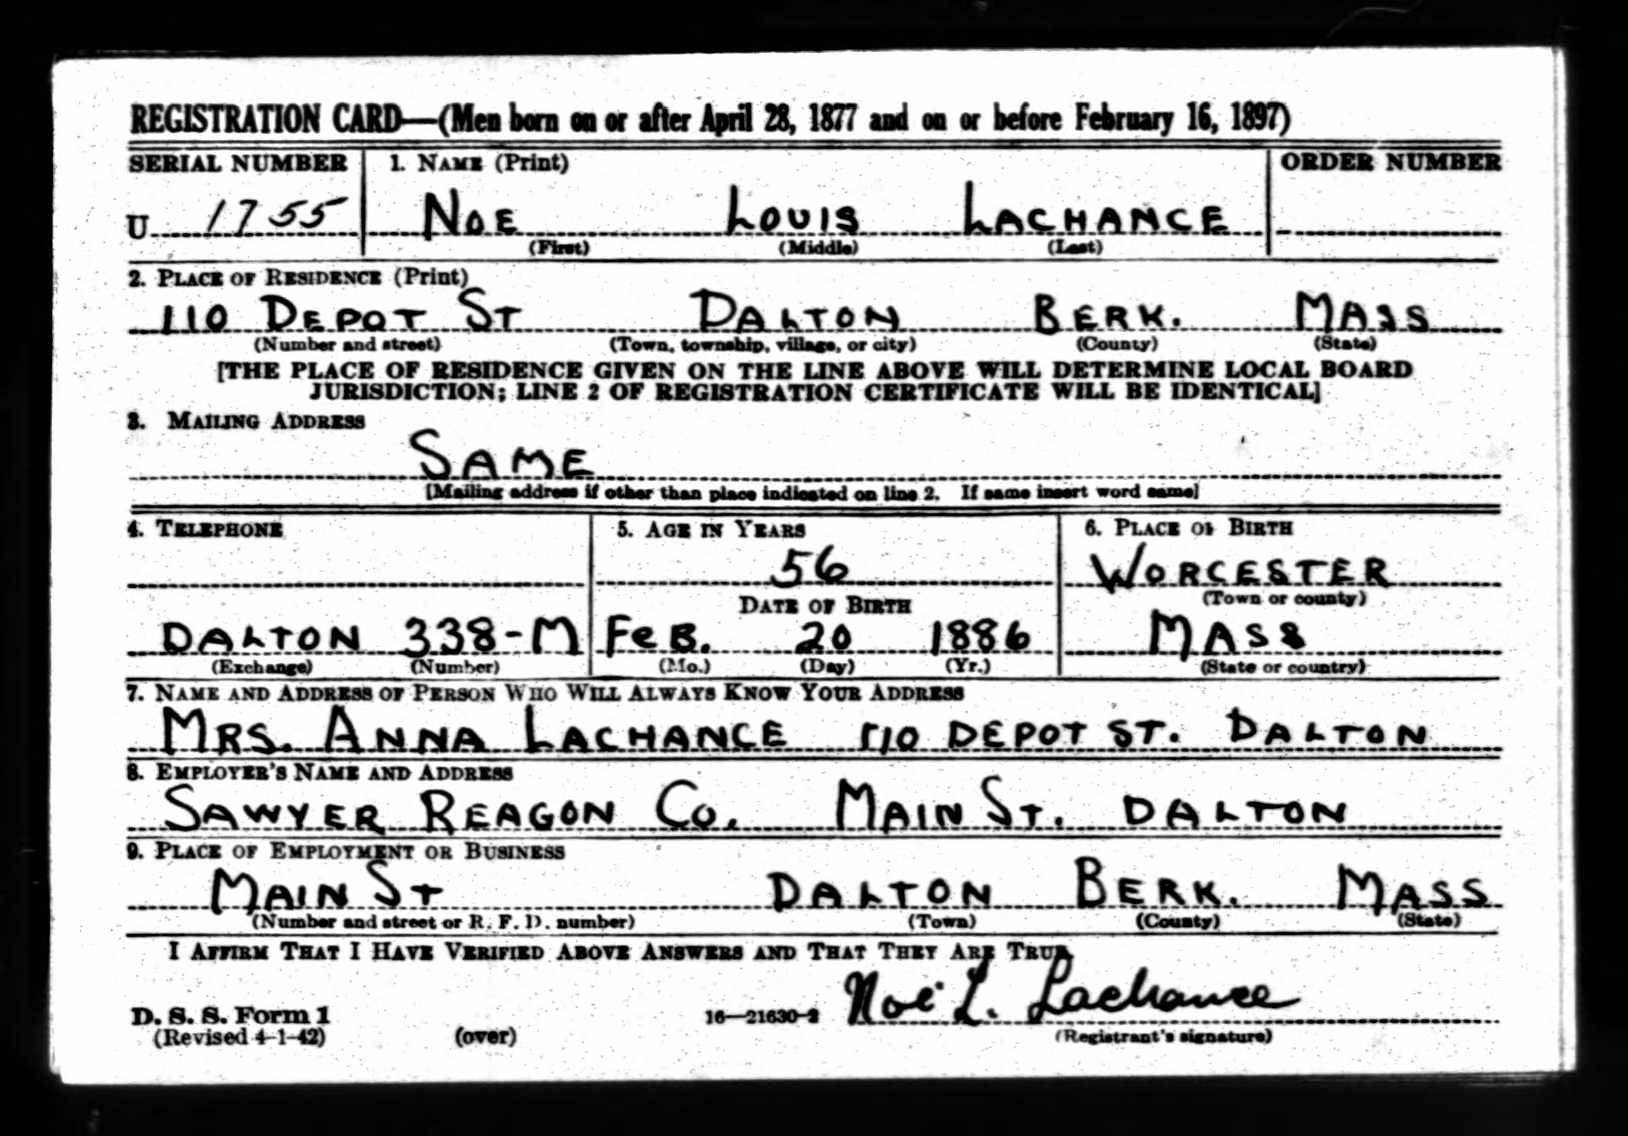 REGISTRATION CARD—(Men born on or after April 28, 1877 and on or before February 16, 1897)
SERIAL NUMBER 1. NAME (Print) ORDER NUMBER
U 1755 NOE LOUIS LACHANCE
(First) (Middle) (Last)
2. PLACE OF RESIDENCE (Print)
110 DEPOT ST DALTON BERK. MASS
(Number and street) (Town, township, village, or city) (County) (State)
[THE PLACE OF RESIDENCE GIVEN ON THE LINE ABOVE WILL DETERMINE LOCAL BOARD
JURISDICTION; LINE 2 OF REGISTRATION CERTIFICATE WILL BE IDENTICAL]
3. MAILING ADDRESS
SAME
[Mailing address if other than place indicated on line 2. If same insert word same]
4. TELEPHONE 5. AGE IN YEARS 6. PLACE OF BIRTH
56 WORCESTER
DATE OF BIRTH (Town or county)
DALTON 338-M FEB. 20 1886 MASS
(Exchange) (Number) (Mo.) (Day) (Yr.) (State or country)
7. NAME AND ADDRESS OF PERSON WHO WILL ALWAYS KNOW YOUR ADDRESS
MRS. ANNA LACHANCE 110 DEPOT ST. DALTON
8. EMPLOYER'S NAME AND ADDRESS
SAWYER REAGON CO. MAIN ST. DALTON
9. PLACE OF EMPLOYMENT OR BUSINESS
MAIN ST DALTON BERK. MASS
(Number and street or R. F. D. number) (Town) (County) (State)
I AFFIRM THAT I HAVE VERIFIED ABOVE ANSWERS AND THAT THEY ARE TRUE.
Noë L. Lachance
D. S. S. Form 1 16—21630-2
(Revised 4-1-42) (over) (Registrant's signature)